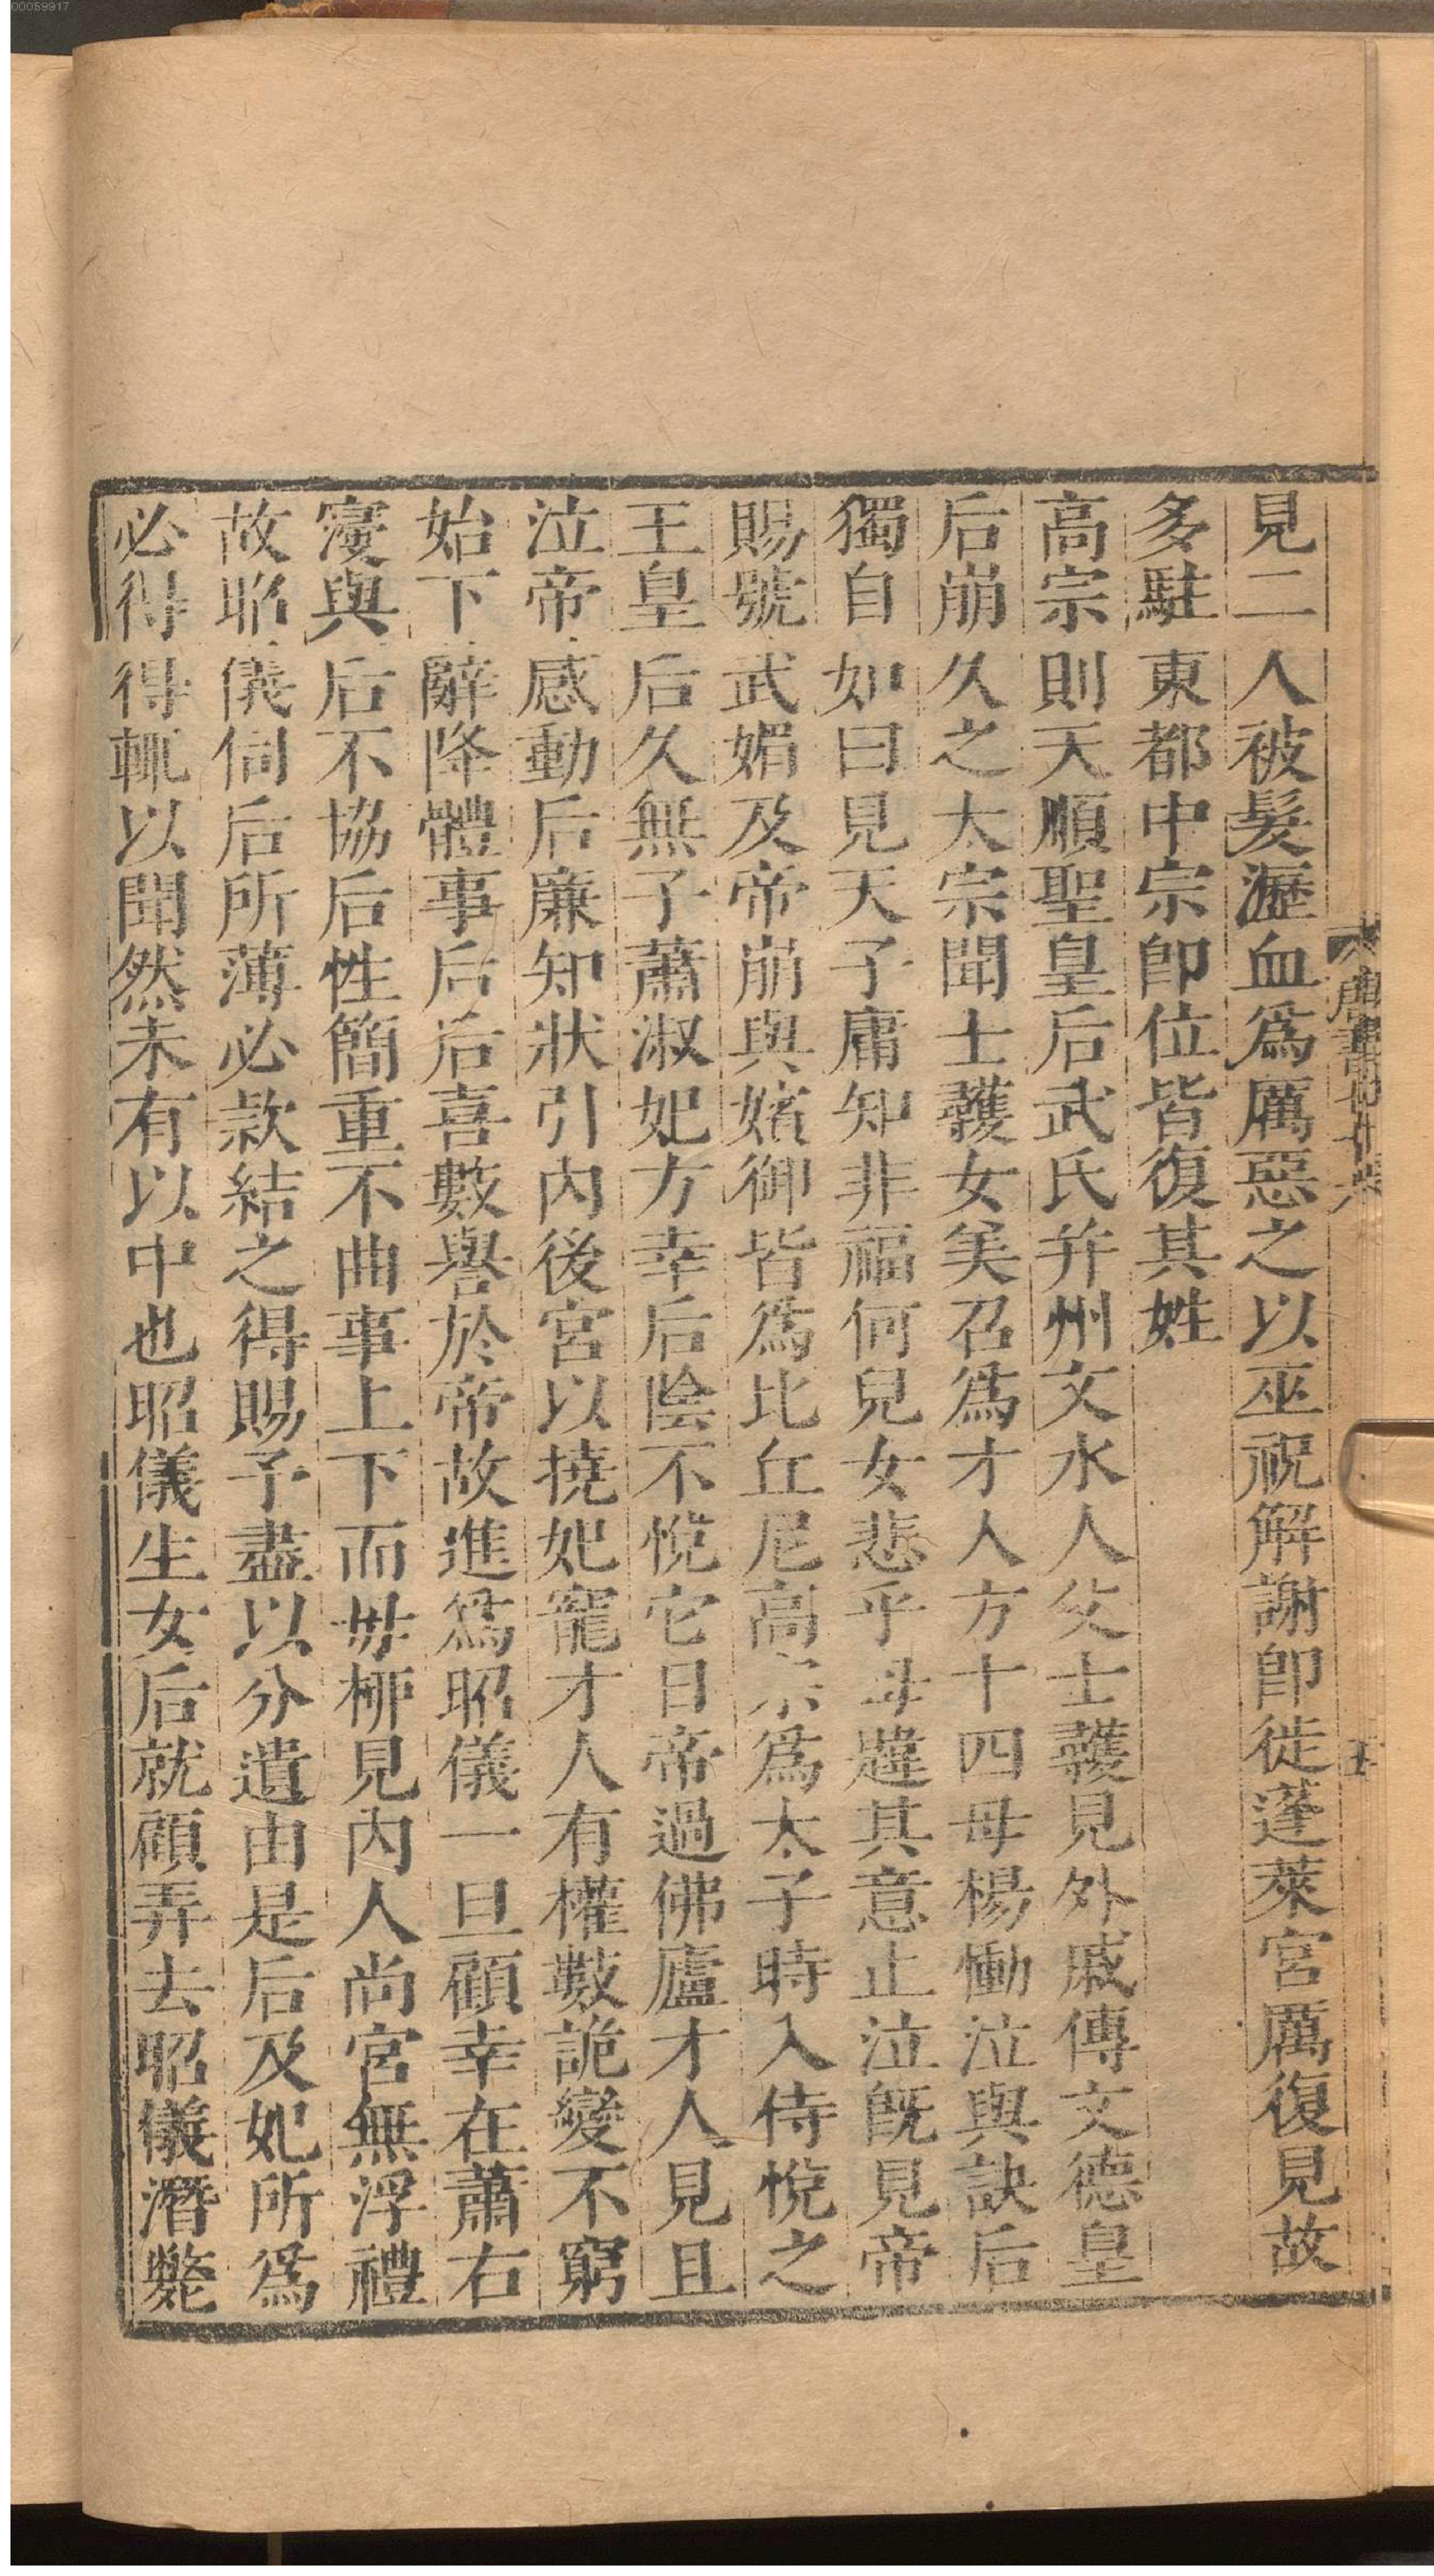 00059917
見二人被髮瀝血爲厲惡之以巫祝解謝即徙蓬萊宮厲復見故
多駐東都中宗即位皆復其姓
高宗則天順聖皇后武氏并州文水人父士彠見外戚傳文德皇
后崩久之太宗聞士彠女美召爲才人方十四母楊慟泣與訣后
獨自如曰見天子庸知非福何兒女悲乎母韙其意止泣旣見帝
賜號武媚及帝崩與嬪御皆爲比丘尼高宗爲太子時入侍悅之
王皇后久無子蕭淑妃方幸后陰不悅它日帝過佛廬才人見且
泣帝感動后廉知狀引內後宮以撓妃寵才人有權數詭變不窮
始下辭降體事后后喜數譽於帝故進爲昭儀一旦顧幸在蕭右
寖與后不協后性簡重不曲事上下而母柳見內人尚宮無浮禮
故昭儀伺后所薄必款結之得賜予盡以分遺由是后及妃所爲
必得得輒以聞然未有以中也昭儀生女后就顧弄去昭儀潛斃